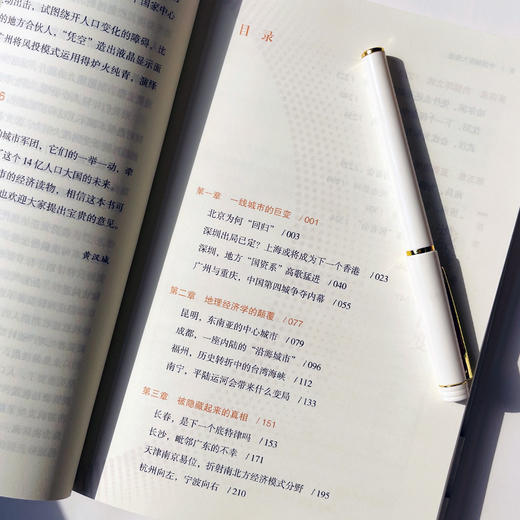 国家中心
动出击，试图绕开人口变化的障碍，比
的地方合伙人，“凭空”造出液晶显示面
州将风投模式运用得炉火纯青，演绎
6
的城市军团，它们的一举一动，牵
了这个14亿人口大国的未来。
市的经济读物，相信这本书可
也欢迎大家提出宝贵的意见。
黄汉城
目录
第一章 一线城市的巨变 /001
北京为何“回归” /003
深圳出局已定？上海或将成为下一个香港 /023
深圳，地方“国资系”高歌猛进 /040
广州与重庆，中国第四城争夺内幕 /055
第二章 地理经济学的颠覆 /077
昆明，东南亚的中心城市 /079
成都，一座内陆的“沿海城市” /096
福州，历史转折中的台湾海峡 /112
南宁，平陆运河会带来什么变局 /133
第三章 被隐藏起来的真相 /151
长春，是下一个底特律吗 /153
长沙，毗邻广东的不幸 /171
天津南京易位，折射南北方经济模式分野 /195
杭州向左，宁波向右 /210